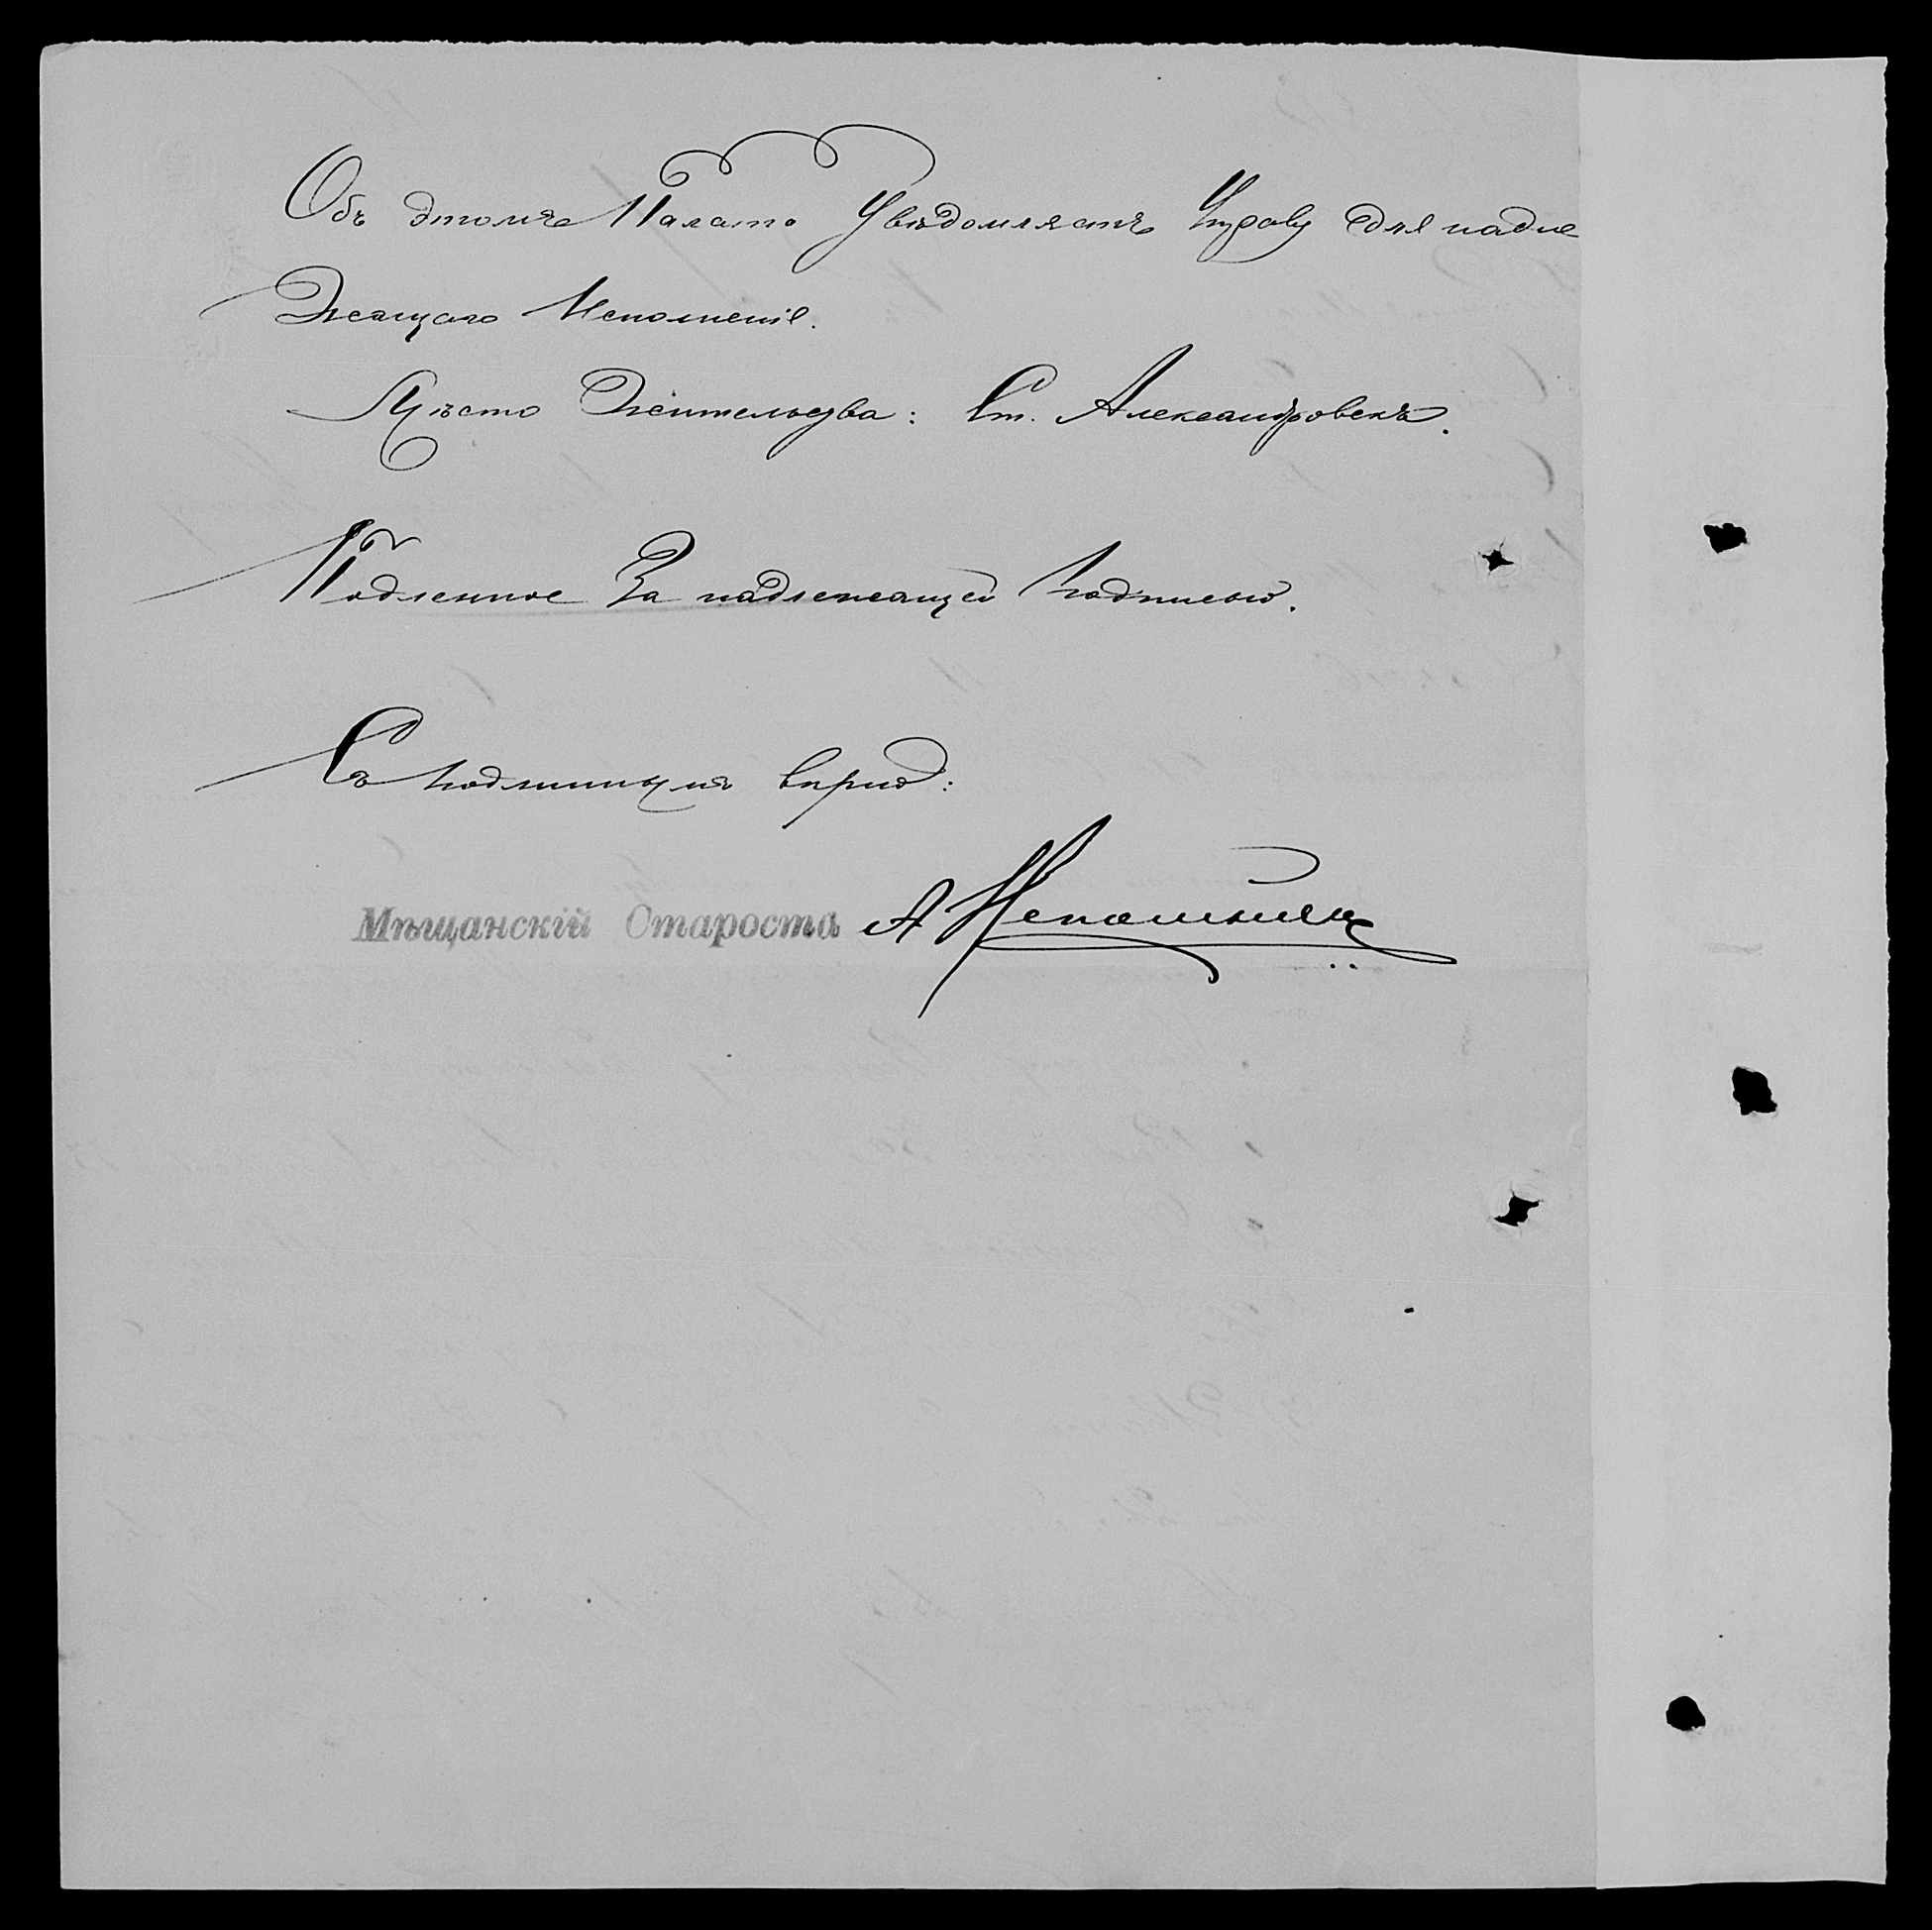 Объ этомъ Палата Увѣдомляетъ Управу для надле
жащаго Исполненія.
Мѣсто Жительства: Ст. Александровскъ.
Подленное За надлежащей Подписью.
Съ подлиннымъ вѣрно:
Мѣщанскій Староста А